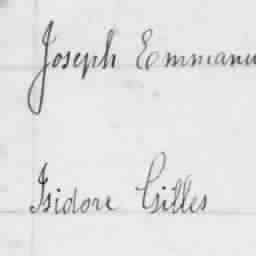 Joseph Emmanu
Isidore Gilles